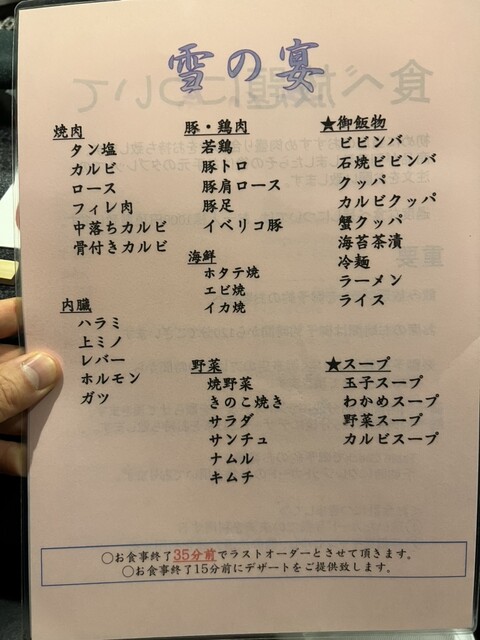 雪の宴
焼肉
タン塩
カルビ
ロース
フィレ肉
中落ちカルビ
骨付きカルビ
内臓
ハラミ
上ミノ
レバー
ホルモン
ガツ
豚・鶏肉
若鶏
豚トロ
豚肩ロース
豚足
イベリコ豚
海鮮
ホタテ焼
エビ焼
イカ焼
野菜
焼野菜
きのこ焼き
サラダ
サンチュ
ナムル
キムチ
★御飯物
ビビンバ
石焼ビビンバ
クッパ
カルビクッパ
蟹クッパ
海苔茶漬
冷麺
ラーメン
ライス
★スープ
玉子スープ
わかめスープ
野菜スープ
カルビスープ
〇お食事終了35分前でラストオーダーとさせて頂きます。
〇お食事終了15分前にデザートをご提供致します。